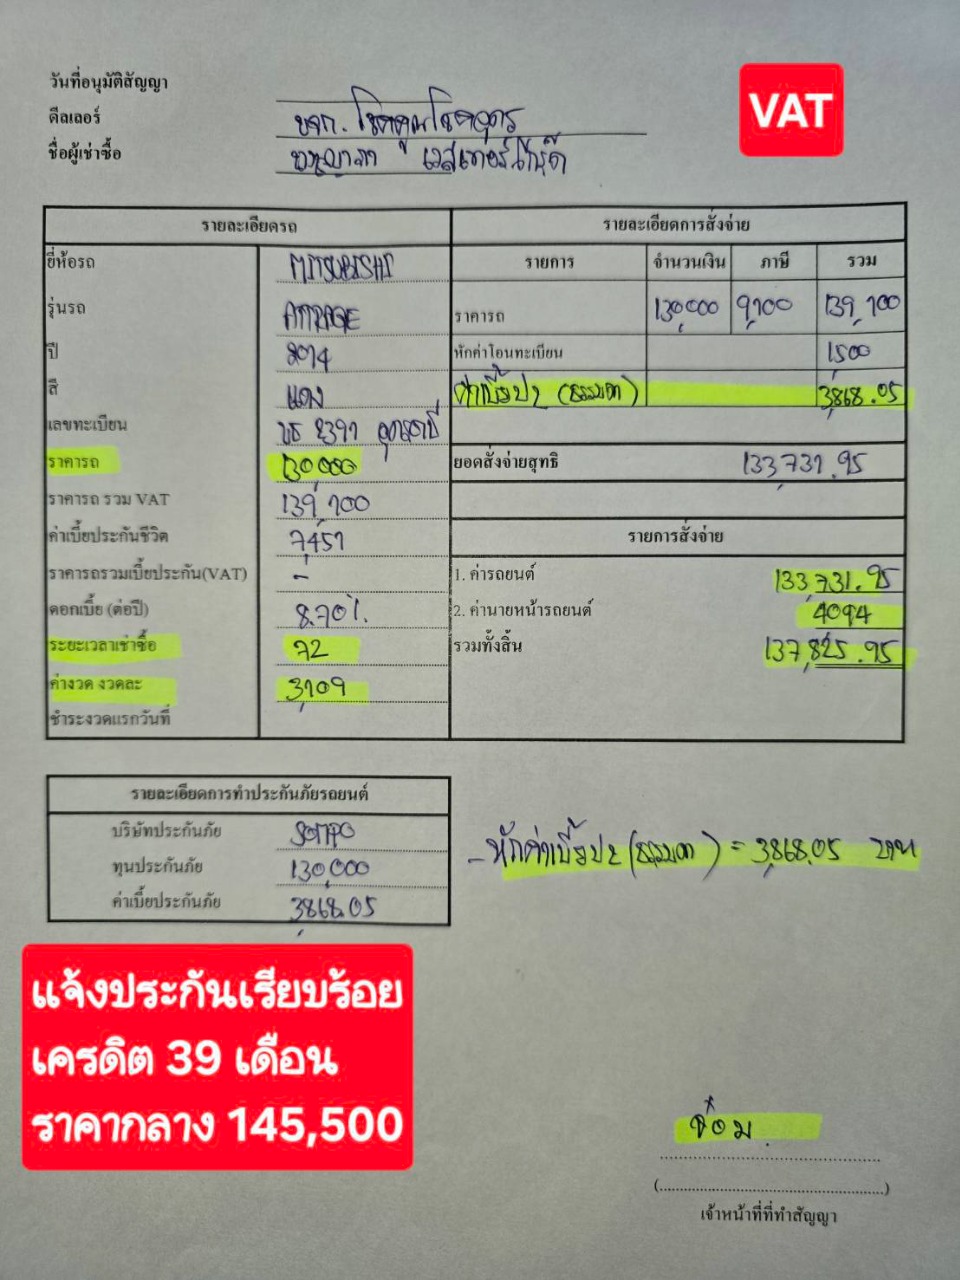 วันที่อนุมัติสัญญา
VAT
ดีลเลอร์ บจก. โชคคูณโชคอุดร
ชื่อผู้เช่าซื้อ
รายละเอียดรถ
ยี่ห้อรถ MITSUBISHI
รุ่นรถ ATTRAGE
ปี 2014
สี แดง
เลขทะเบียน 2391 อุดรธานี
ราคารถ 130,000
ราคารถ รวม VAT 139,100
ค่าเบี้ยประกันชีวิต 7,451
ราคารถรวมเบี้ยประกัน(VAT) -
ดอกเบี้ย (ต่อปี) 8.70%.
ระยะเวลาเช่าซื้อ 72
ค่างวด งวดละ 3,109
ชำระงวดแรกวันที่
รายละเอียดการสั่งจ่าย
รายการ จำนวนเงิน ภาษี รวม
ราคารถ 130,000 9,100 139,100
หักค่าโอนทะเบียน 1,500
ค่าเบี้ยปร (ธรรมดา) 3,868.05
ยอดสั่งจ่ายสุทธิ 133,731.95
รายการสั่งจ่าย
1. ค่ารถยนต์ 133,731.95
2. ค่านายหน้ารถยนต์ 4094
รวมทั้งสิ้น 137,825.95
รายละเอียดการทำประกันภัยรถยนต์
บริษัทประกันภัย SOMPO
ทุนประกันภัย 130,000
ค่าเบี้ยประกันภัย 3,868.05
- หักค่าเบี้ยปร (ธรรมดา) = 3,868.05 บาท
แจ้งประกันเรียบร้อย
เครดิต 39 เดือน
ราคากลาง 145,500
จ๋อม
(........................)
เจ้าหน้าที่ที่ทำสัญญา